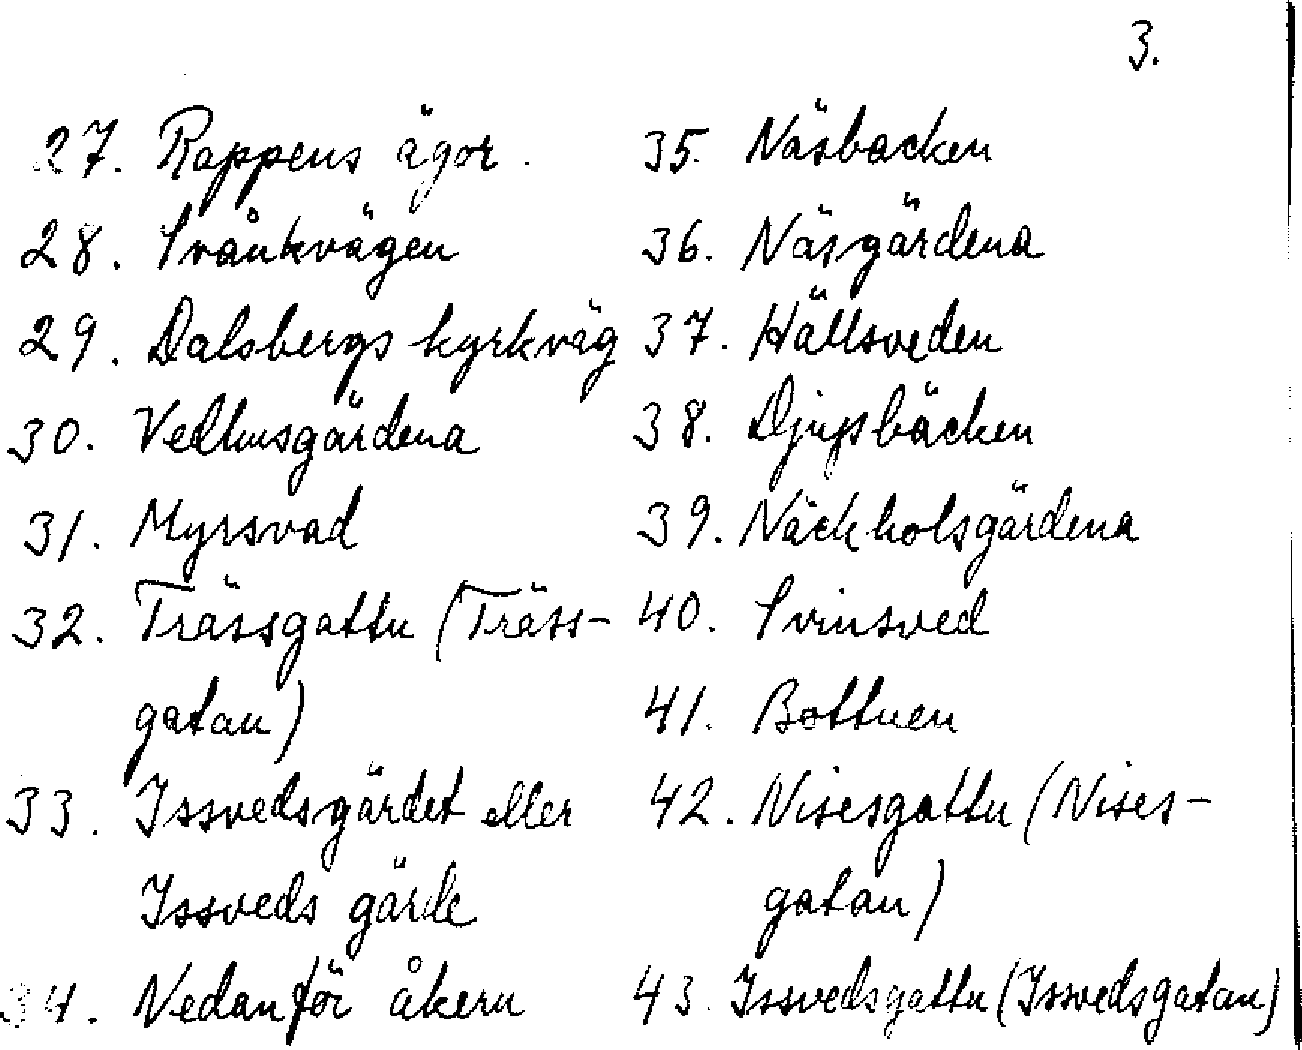 3.
27. Rappens ägor.
28. Svånkvägen
29. Dalsbergs kyrkväg
30. Vedhusgärdena
31. Myrsvad
32. Trässgattu (Träss-
gatan)
33. Issvedsgärdet eller
Issveds gärde
34. Nedanför åkern
35. Näsbacken
36. Näsgärdena
37. Hällsveden
38. Djupsbäcken
39. Näckholsgärdena
40. Svinsved
41. Bottnen
42. Nisesgattu (Nises-
gatan)
43. Issvedsgattu (Issvedsgatan)